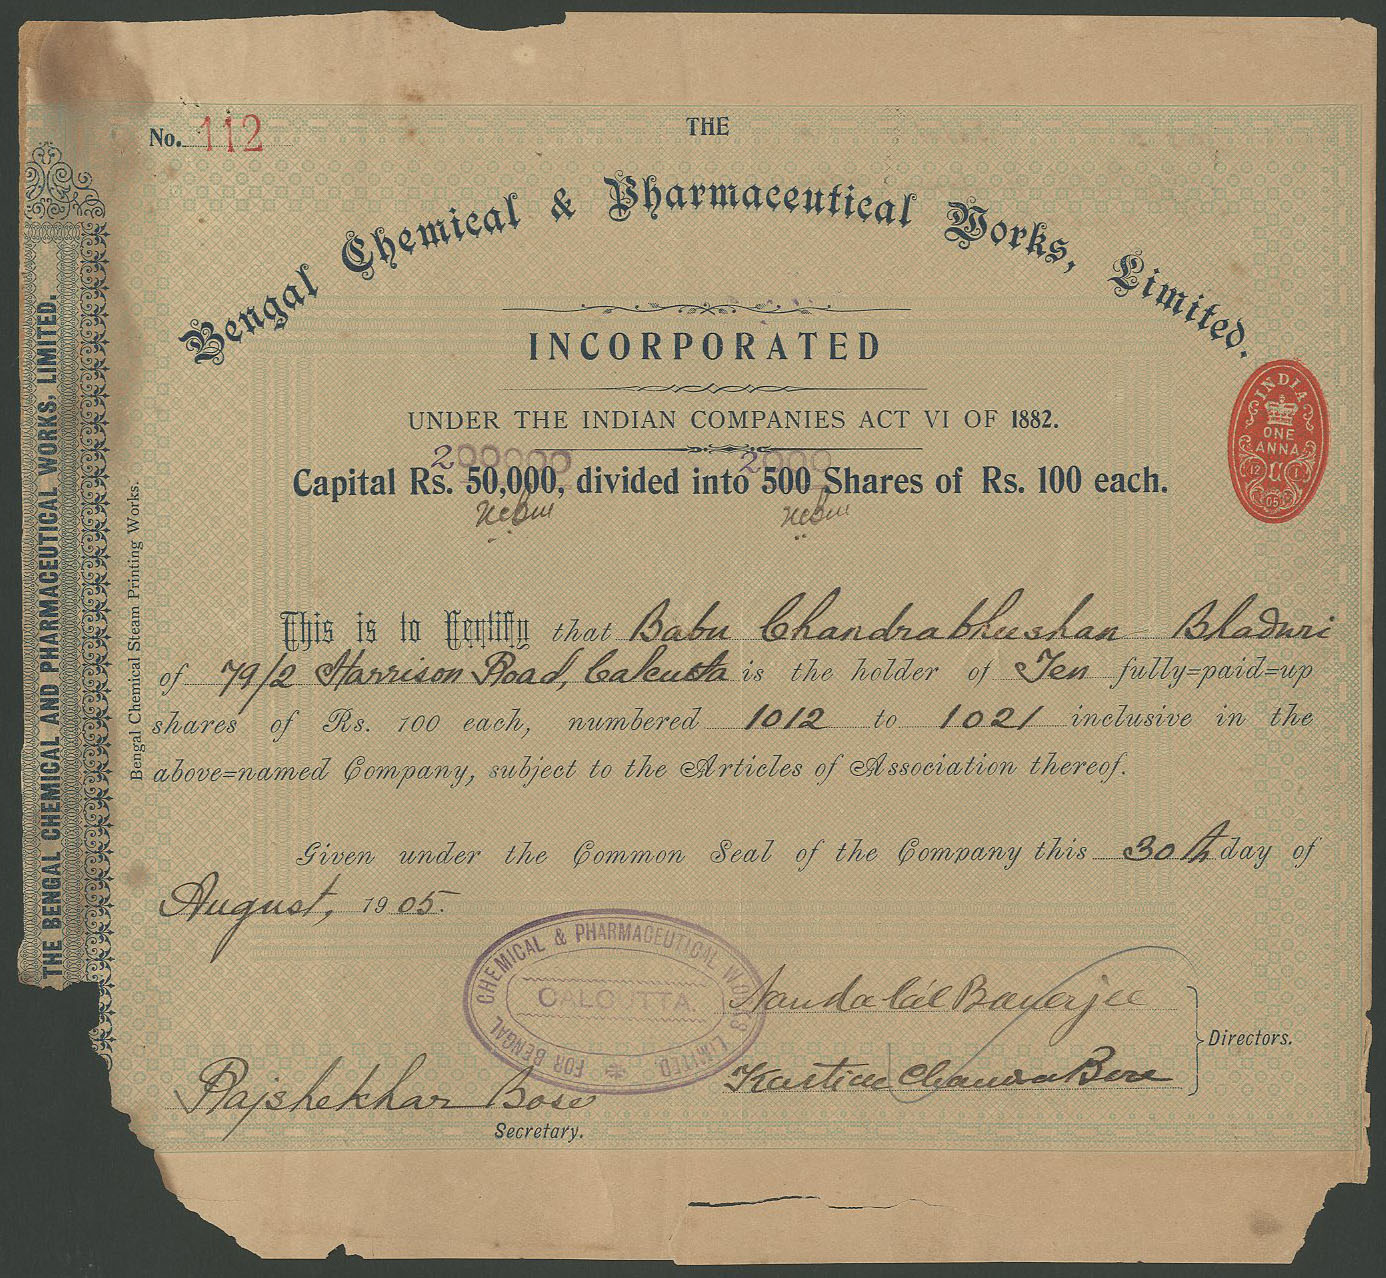 No. 112
THE
Bengal Chemical & Pharmaceutical Works, Limited.
INCORPORATED
UNDER THE INDIAN COMPANIES ACT VI OF 1882.
200000 2000
Capital Rs. 50,000, divided into 500 Shares of Rs. 100 each.
INDIA
ONE
ANNA
12 1
05
This is to Certify that Babu Chandrabhushan Bhaduri
of 79/2 Harrison Road, Calcutta is the holder of Ten fully=paid=up
shares of Rs. 100 each, numbered 1012 to 1021 inclusive in the
above=named Company, subject to the Articles of Association thereof.
Given under the Common Seal of the Company this 30th day of
August, 1905.
FOR BENGAL CHEMICAL & PHARMACEUTICAL WORKS LIMITED.
CALCUTTA.
Nanda Lal Banerjee
Directors.
Kartic Chandra Bose
Rajshekhar Bose
Secretary.
THE BENGAL CHEMICAL AND PHARMACEUTICAL WORKS, LIMITED.
Bengal Chemical Steam Printing Works.